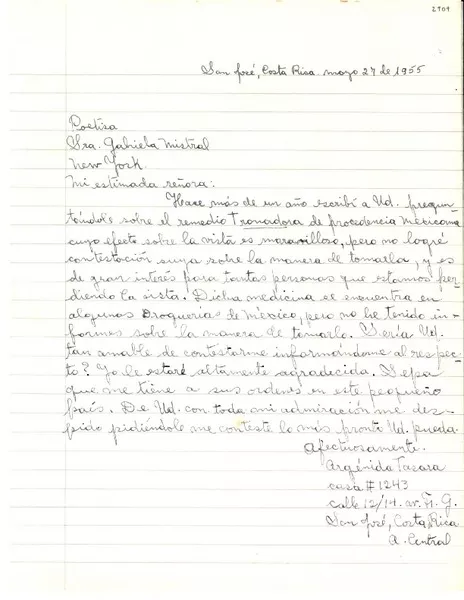 2909
San José, Costa Rica mayo 27 de 1955
Poetisa
Sra. Gabriela Mistral
New York.
Mi estimada señora:
Hace más de un año escribí a Ud. pregun-
tándole sobre el remedio Tronadora de procedencia Mexicana
cuyo efecto sobre la vista es maravilloso, pero no logré
contestación suya sobre la manera de tomarlo, y es
de gran interés para tantas personas que estamos per-
diendo la vista. Dicha medicina se encuentra en
algunas Droguerías de México, pero no he tenido in-
formes sobre la manera de tomarlo. Sería Ud.
tan amable de contestarme informándome al respec-
to? Yo le estaré altamente agradecida. Sepa
que me tiene a sus ordenes en este pequeño
país. De Ud. con toda mi admiración me des-
pido pidiéndole me conteste lo más pronto Ud. pueda.
Afectuosamente.
Argénida
casa # 1243
calle 12/14. av. F. G.
San José, Costa Rica
A. Central